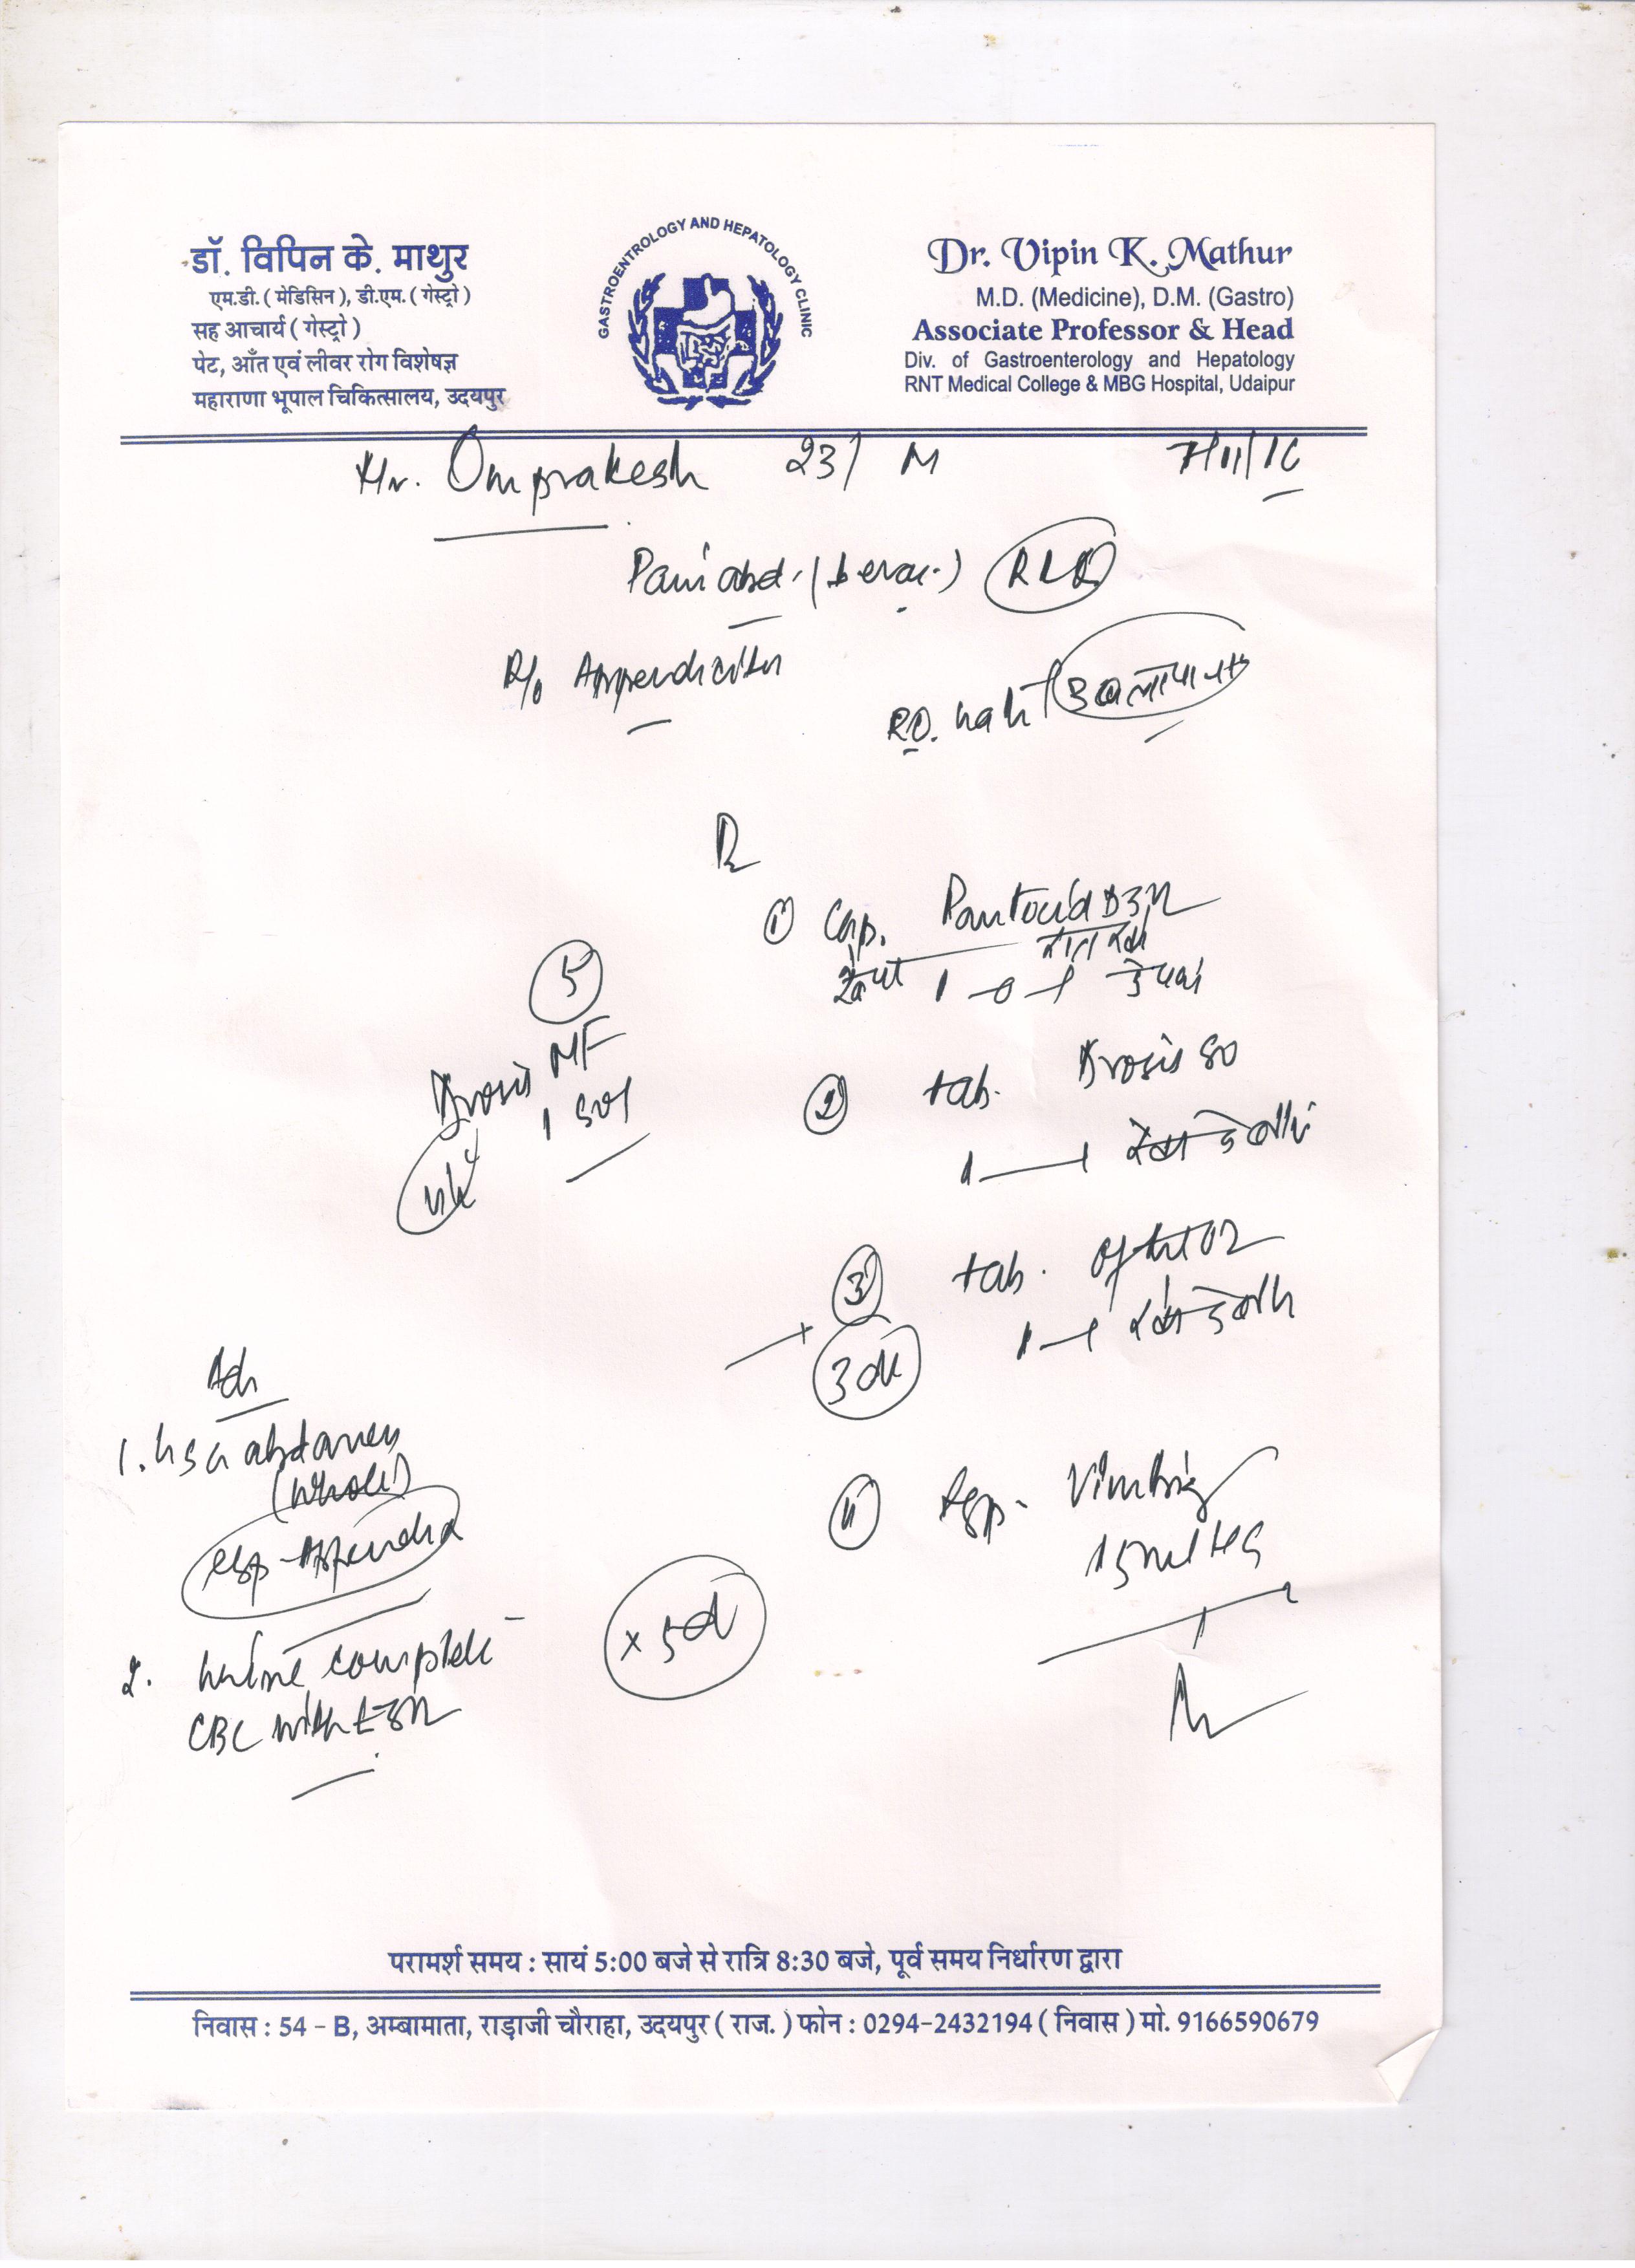 डॉ. विपिन के. माथुर
एम.डी. ( मेडिसिन ), डी.एम. ( गेस्ट्रो )
सह आचार्य ( गेस्ट्रो )
पेट, आँत एवं लीवर रोग विशेषज्ञ
महाराणा भूपाल चिकित्सालय, उदयपुर
GASTROENTROLOGY AND HEPATOLOGY CLINIC
Dr. Vipin K. Mathur
M.D. (Medicine), D.M. (Gastro)
Associate Professor & Head
Div. of Gastroenterology and Hepatology
RNT Medical College & MBG Hospital, Udaipur
Mr. Omprakesh 23/ M 7/11/16
Pain abd. RLQ
R/o Appendicitis
RO.
Rx
① Cap. Pantocid DSR
1 - 0 - 1
② tab. Drosis 80
1 — 1
③ tab. Oflot OZ
1 - 1
3 d
④ Syp. Vimbig
15ml HS
⑤
Drosis MF
1 SOS
x 5d
Adv
1. USG abdomen
(whole)
esp - Appendix
2. Urine complete
CBC with ESR
परामर्श समय : सायं 5:00 बजे से रात्रि 8:30 बजे, पूर्व समय निर्धारण द्वारा
निवास : 54 - B, अम्बामाता, राड़ाजी चौराहा, उदयपुर ( राज. ) फोन : 0294-2432194 ( निवास ) मो. 9166590679